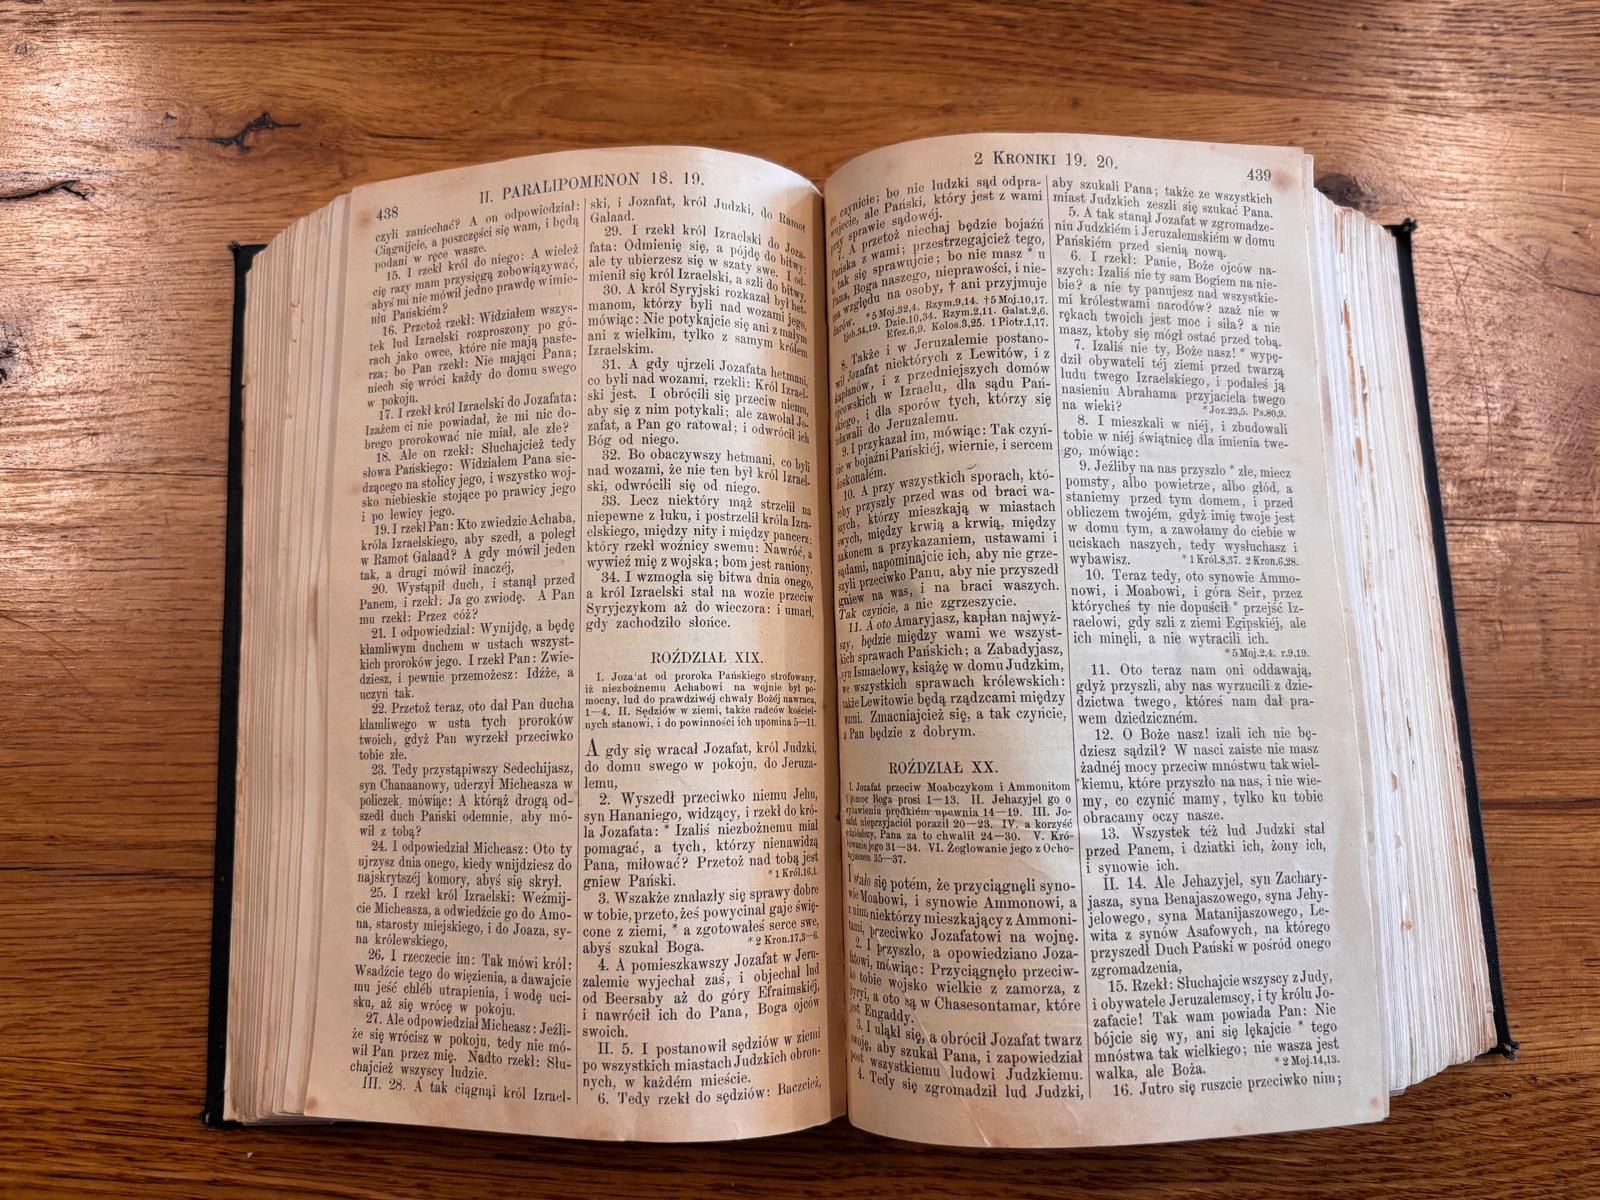 438
II. PARALIPOMENON 18. 19.
czyli zaniechać? A on odpowiedział:
Ciągnijcie, a poszczęści się wam, i będą
podani w ręce wasze.
15. I rzekł król do niego: A wieleż
cię razy mam przysięgą zobowiązywać,
abyś mi nie mówił jedno prawdę w imie-
niu Pańskiém?
16. Przetoż rzekł: Widziałem wszys-
tek lud Izraelski rozproszony po gó-
rach jako owce, które nie mają paste-
rza; bo Pan rzekł: Nie mająci Pana;
niech się wróci każdy do domu swego
w pokoju.
17. I rzekł król Izraelski do Jozafata:
Izażem ci nie powiadał, że mi nic do-
brego prorokować nie miał, ale złe?
18. Ale on rzekł: Słuchajcież tedy
słowa Pańskiego: Widziałem Pana sie-
dzącego na stolicy jego, i wszystko woj-
sko niebieskie stojące po prawicy jego
i po lewicy jego.
19. I rzekł Pan: Kto zwiedzie Achaba,
króla Izraelskiego, aby szedł, a poległ
w Ramot Galaad? A gdy mówił jeden
tak, a drugi mówił inaczéj,
20. Wystąpił duch, i stanął przed
Panem, i rzekł: Ja go zwiodę. A Pan
mu rzekł: Przez cóż?
21. I odpowiedział: Wynijdę, a będę
kłamliwym duchem w ustach wszyst-
kich proroków jego. I rzekł Pan: Zwie-
dziesz, i pewnie przemożesz: Idźże, a
uczyń tak.
22. Przetoż teraz, oto dał Pan ducha
kłamliwego w usta tych proroków
twoich, gdyż Pan wyrzekł przeciwko
tobie złe.
23. Tedy przystąpiwszy Sedechijasz,
syn Chanaanowy, uderzył Micheasza w
policzek, mówiąc: A którąż drogą od-
szedł duch Pański odemnie, aby mó-
wił z tobą?
24. I odpowiedział Micheasz: Oto ty
ujrzysz dnia onego, kiedy wnijdziesz do
najskrytszéj komory, abyś się skrył.
25. I rzekł król Izraelski: Weźmij-
cie Micheasza, a odwiedźcie go do Amo-
na, starosty miejskiego, i do Joaza, sy-
na królewskiego,
26. I rzeczecie im: Tak mówi król:
Wsadźcie tego do więzienia, a dawajcie
mu jeść chléb utrapienia, i wodę uci-
sku, aż się wrócę w pokoju.
27. Ale odpowiedział Micheasz: Jeźli-
że się wrócisz w pokoju, tedy nie mó-
wił Pan przez mię. Nadto rzekł: Słu-
chajcież wszyscy ludzie.
III. 28. A tak ciągnął król Izrael-
ski, i Jozafat, król Judzki, do Ramot
Galaad.
29. I rzekł król Izraelski do Joza-
fata: Odmienię się, a pójdę do bitwy;
ale ty ubierzesz się w szaty swe. I od-
mienił się król Izraelski, a szli do bitwy.
30. A król Syryjski rozkazał był het-
manom, którzy byli nad wozami jego,
mówiąc: Nie potykajcie się ani z małym
ani z wielkim, tylko z samym królem
Izraelskim.
31. A gdy ujrzeli Jozafata hetmani,
co byli nad wozami, rzekli: Król Izrael-
ski jest. I obrócili się przeciw niemu,
aby się z nim potykali; ale zawołał Jo-
zafat, a Pan go ratował; i odwrócił ich
Bóg od niego.
32. Bo obaczywszy hetmani, co byli
nad wozami, że nie ten był król Izrael-
ski, odwrócili się od niego.
33. Lecz niektóry mąż strzelił na
niepewne z łuku, i postrzelił króla Izra-
elskiego, między nity i między pancerz;
który rzekł woźnicy swemu: Nawróć, a
wywieź mię z wojska; bom jest raniony.
34. I wzmogła się bitwa dnia onego,
a król Izraelski stał na wozie przeciw
Syryjczykom aż do wieczora: i umarł,
gdy zachodziło słońce.
ROŹDZIAŁ XIX.
I. Joza at od proroka Pańskiego strofowany,
iż niezbożnemu Achabowi na wojnie był po-
mocny, lud do prawdziwéj chwały Bożéj nawraca,
1—4. II. Sędziów w ziemi, także radców kościel-
nych stanowi, i do powinności ich upomina 5—11.
A gdy się wracał Jozafat, król Judzki,
do domu swego w pokoju, do Jeruza-
lemu,
2. Wyszedł przeciwko niemu Jehu,
syn Hananiego, widzący, i rzekł do kró-
la Jozafata: * Izaliś niezbożnemu miał
pomagać, a tych, którzy nienawidzą
Pana, miłować? Przetoż nad tobą jest
gniew Pański. * 1 Król.16,1.
3. Wszakże znalazły się sprawy dobre
w tobie, przeto, żeś powycinał gaje świę-
cone z ziemi, * a zgotowałeś serce swe,
abyś szukał Boga. * 2 Kron.17,3—6.
4. A pomieszkawszy Jozafat w Jeru-
zalemie wyjechał zaś, i objechał lud
od Beersaby aż do góry Efraimskiéj,
i nawrócił ich do Pana, Boga ojców
swoich.
II. 5. I postanowił sędziów w ziemi
po wszystkich miastach Judzkich obron-
nych, w każdém mieście.
6. Tedy rzekł do sędziów: Baczcież,
2 KRONIKI 19. 20.
439
co czynicie; bo nie ludzki sąd odpra-
wujecie, ale Pański, który jest z wami
przy sprawie sądowéj.
7. A przetoż niechaj będzie bojaźń
Pańska z wami; przestrzegajcież tego,
a tak się sprawujcie; bo nie masz * u
Pana, Boga naszego, nieprawości, i nie-
ma względu na osoby, † ani przyjmuje
darów. * 5 Moj.32,4. Rzym.9,14. †5 Moj.10,17.
Ijob.34,19. Dzie.10,34. Rzym.2,11. Galat.2,6.
Efez.6,9. Kolos.3,25. 1 Piotr.1,17.
8. Także i w Jeruzalemie postano-
wił Jozafat niektórych z Lewitów, i z
kapłanów, i z przedniejszych domów
ojcowskich w Izraelu, dla sądu Pań-
skiego, i dla sporów tych, którzy się
udawali do Jeruzalemu.
9. I przykazał im, mówiąc: Tak czyń-
cie w bojaźni Pańskiéj, wiernie, i sercem
doskonałém.
10. A przy wszystkich sporach, któ-
reby przyszły przed was od braci wa-
szych, którzy mieszkają w miastach
swych, między krwią a krwią, między
zakonem a przykazaniem, ustawami i
sądami, napominajcie ich, aby nie grze-
szyli przeciwko Panu, aby nie przyszedł
gniew na was, i na braci waszych.
Tak czyńcie, a nie zgrzeszycie.
11. A oto Amaryjasz, kapłan najwyż-
szy, będzie między wami we wszyst-
kich sprawach Pańskich; a Zabadyjasz,
syn Ismaelowy, książę w domu Judzkim,
we wszystkich sprawach królewskich:
także Lewitowie będą rządzcami między
wami. Zmacniajcież się, a tak czyńcie,
a Pan będzie z dobrym.
ROŹDZIAŁ XX.
I. Jozafat przeciw Moabczykom i Ammonitom
o pomoc Boga prosi 1—13. II. Jehazyjel go o
wybawieniu prędkiém upewnia 14—19. III. Jo-
zafat nieprzyjaciół poraził 20—23. IV. a korzyść
odniósłszy, Pana za to chwalił 24—30. V. Kró-
lowanie jego 31—34. VI. Żeglowanie jego z Ocho-
zyjaszem 35—37.
I stało się potém, że przyciągnęli syno-
wie Moabowi, i synowie Ammonowi, a
z nimi niektórzy mieszkający z Ammoni-
tami, przeciwko Jozafatowi na wojnę.
2. I przyszło, a opowiedziano Joza-
fatowi, mówiąc: Przyciągnęło przeciw-
ko tobie wojsko wielkie z zamorza, z
Syryi, a oto są w Chasesontamar, które
jest Engaddy.
3. I uląkł się, a obrócił Jozafat twarz
swoję, aby szukał Pana, i zapowiedział
post wszystkiemu ludowi Judzkiemu.
4. Tedy się zgromadził lud Judzki,
aby szukali Pana; także ze wszystkich
miast Judzkich zeszli się szukać Pana.
5. A tak stanął Jozafat w zgromadze-
niu Judzkiém i Jeruzalemskiém w domu
Pańskiém przed sienią nową.
6. I rzekł: Panie, Boże ojców na-
szych: Izaliś nie ty sam Bogiem na nie-
bie? a nie ty panujesz nad wszystkie-
mi królestwami narodów? azaż nie w
rękach twoich jest moc i siła? a nie
masz, ktoby się mógł ostać przed tobą.
7. Izaliś nie ty, Boże nasz! * wypę-
dził obywateli téj ziemi przed twarzą
ludu twego Izraelskiego, i podałeś ją
nasieniu Abrahama przyjaciela twego
na wieki? * Joz.23,5. Ps.80,9.
8. I mieszkali w niéj, i zbudowali
tobie w niéj świątnicę dla imienia twe-
go, mówiąc:
9. Jeźliby na nas przyszło * złe, miecz
pomsty, albo powietrze, albo głód, a
staniemy przed tym domem, i przed
obliczem twojém, gdyż imię twoje jest
w domu tym, a zawołamy do ciebie w
uciskach naszych, tedy wysłuchasz i
wybawisz. * 1 Król.8,37. 2 Kron.6,28.
10. Teraz tedy, oto synowie Ammo-
nowi, i Moabowi, i góra Seir, przez
którycheś ty nie dopuścił * przejść Iz-
raelowi, gdy szli z ziemi Egipskiéj, ale
ich minęli, a nie wytracili ich.
* 5 Moj.2,4. r.9,19.
11. Oto teraz nam oni oddawają,
gdyż przyszli, aby nas wyrzucili z dzie-
dzictwa twego, któreś nam dał pra-
wem dziedziczném.
12. O Boże nasz! izali ich nie bę-
dziesz sądził? W nasci zaiste nie masz
żadnéj mocy przeciw mnóstwu tak wiel-
kiemu, które przyszło na nas, i nie wie-
my, co czynić mamy, tylko ku tobie
obracamy oczy nasze.
13. Wszystek téż lud Judzki stał
przed Panem, i dziatki ich, żony ich,
i synowie ich.
II. 14. Ale Jehazyjel, syn Zachary-
jasza, syna Benajaszowego, syna Jehy-
jelowego, syna Matanijaszowego, Le-
wita z synów Asafowych, na którego
przyszedł Duch Pański w pośród onego
zgromadzenia,
15. Rzekł: Słuchajcie wszyscy z Judy,
i obywatele Jeruzalemscy, i ty królu Jo-
zafacie! Tak wam powiada Pan: Nie
bójcie się wy, ani się lękajcie * tego
mnóstwa tak wielkiego; nie wasza jest
walka, ale Boża. * 2 Moj.14,13.
16. Jutro się ruszcie przeciwko nim;